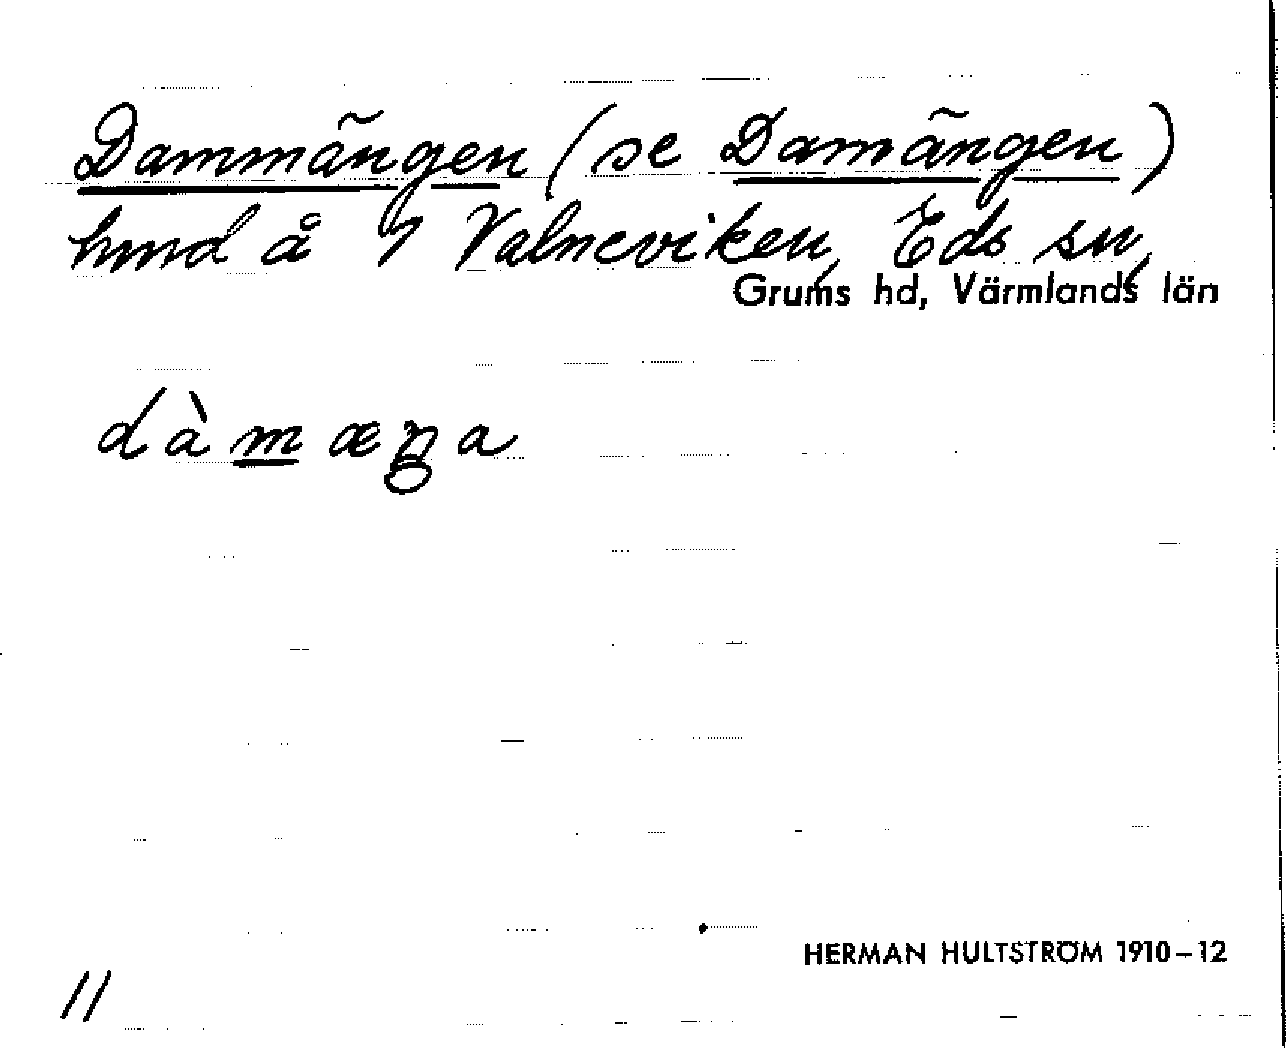 Dammängen (se Damängen)
hmd å 1 Valneviken, Eds sn,
Grums hd, Värmlands län
dàmæŋa
HERMAN HULTSTRÖM 1910–12
11